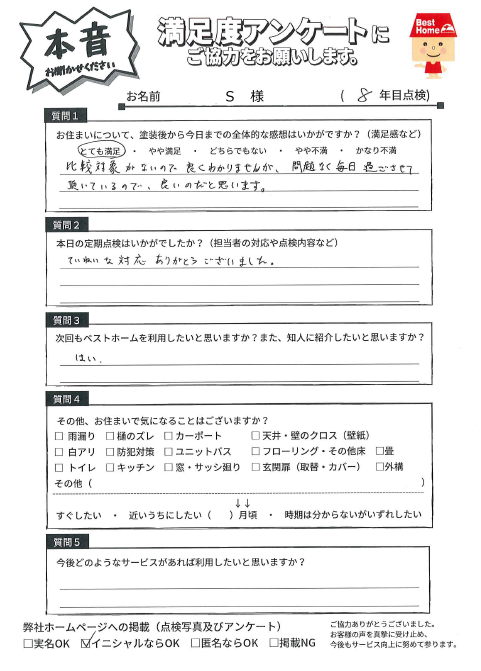 本音
お聞かせください
満足度アンケートに
ご協力をお願いします。
Best
Home
お名前 S 様 ( 8 年目点検)
質問1
お住まいについて、塗装後から今日までの全体的な感想はいかがですか？（満足感など）
とても満足 ・ やや満足 ・ どちらでもない ・ やや不満 ・ かなり不満
比較対象がないので良くわかりませんが、問題なく毎日過ごさせて
頂いているので、良いのだと思います。
質問2
本日の定期点検はいかがでしたか？（担当者の対応や点検内容など）
ていねいな対応ありがとうございました。
質問3
次回もベストホームを利用したいと思いますか？また、知人に紹介したいと思いますか？
はい.
質問4
その他、お住まいで気になることはございますか？
□ 雨漏り □ 樋のズレ □ カーポート □ 天井・壁のクロス（壁紙）
□ 白アリ □ 防犯対策 □ ユニットバス □ フローリング・その他床 □畳
□ トイレ □ キッチン □ 窓・サッシ廻り □ 玄関扉（取替・カバー） □外構
その他（ ）
↓↓
すぐしたい ・ 近いうちにしたい（ ）月頃 ・ 時期は分からないがいずれしたい
質問5
今後どのようなサービスがあれば利用したいと思いますか？
弊社ホームページへの掲載（点検写真及びアンケート）
□実名OK ☑イニシャルならOK □匿名ならOK □掲載NG
ご協力ありがとうございました。
お客様の声を真摯に受け止め、
今後もサービス向上に努めて参ります。